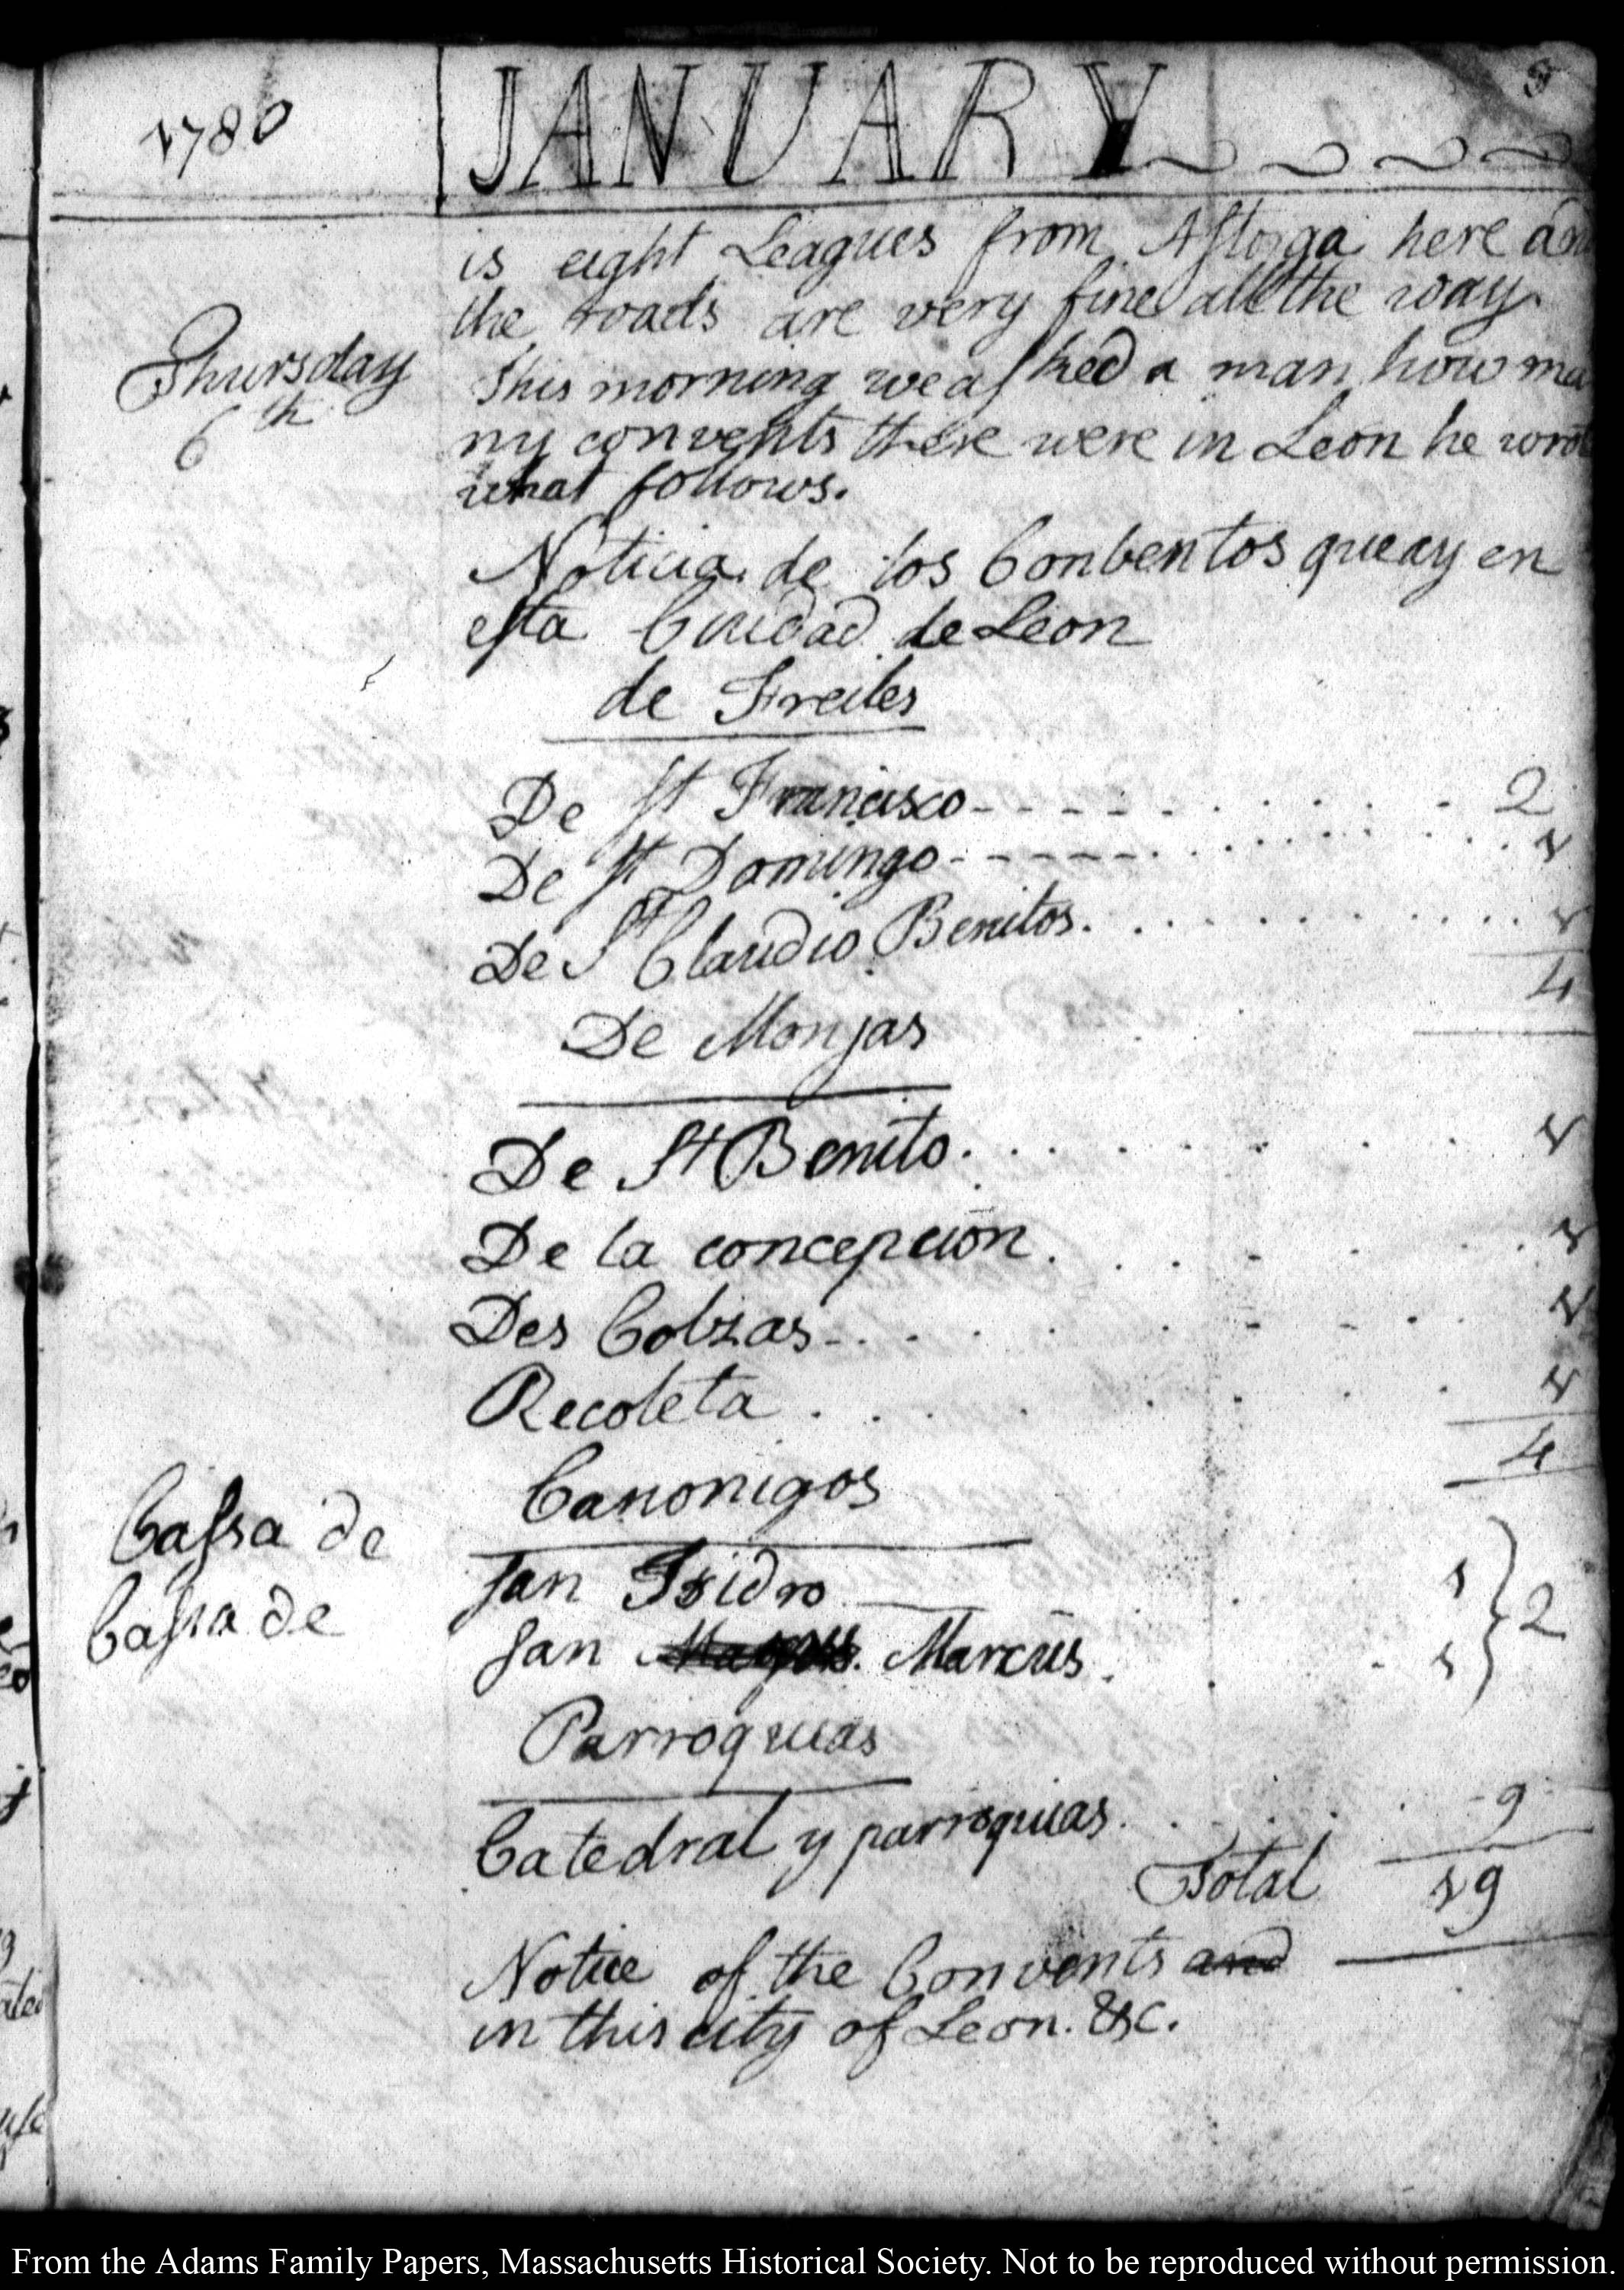 1780
JANUARY
is eight Leagues from Astorga here an
the roads are very fine all the way.
Thursday
6th
This morning we asked a man how ma
ny convents there were in Leon he wrot
what follows.
Noticia de los Conbentos que ay en
esta Ciudad de Leon
de Freiles
De St Francisco 2
De St Domingo 1
De St Claudio Benitos 1
4
De Monjas
De St Benito 1
De la concepcion 1
Des Cobzas 1
Recoleta 1
4
Canonigos
Cassa de San Isidro 1
Cassa de San Marcus 1 } 2
Parroquias
Catedral y parroquias 9
Total 19
Notice of the Convents and
in this city of Leon. &c.
From the Adams Family Papers, Massachusetts Historical Society. Not to be reproduced without permission.